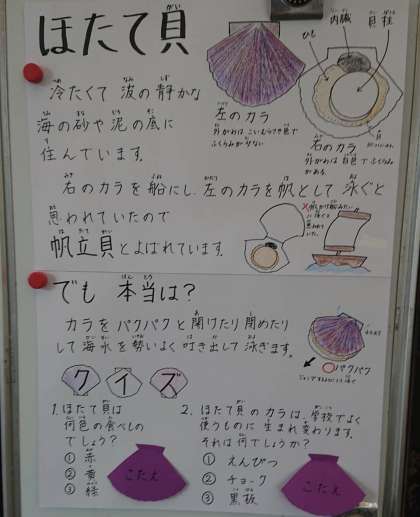 ほたて貝
内臓
貝柱
ひも
左のカラ
外がわはこいむらさき色で
ふくらみが少ない
右のカラ
外がわは白色でふくらみ
がある
冷たくて 波の静かな
海の砂や泥の底に
住んでいます。
右のカラを船にし、左のカラを帆として 泳ぐと
思われていたので
帆立貝とよばれています。
でも 本当は？
カラをパクパクと開けたり閉めたり
して海水を勢いよく吐き出して泳ぎます。
パクパク
クイズ
1. ほたて貝は
何色の食べもの
でしょう？
① 赤
② 黄
③ 緑
こたえ
2. ほたて貝のカラは、学校でよく
使うものに 生まれ変わります。
それは何でしょうか？
① えんぴつ
② チョーク
③ 黒板
こたえ